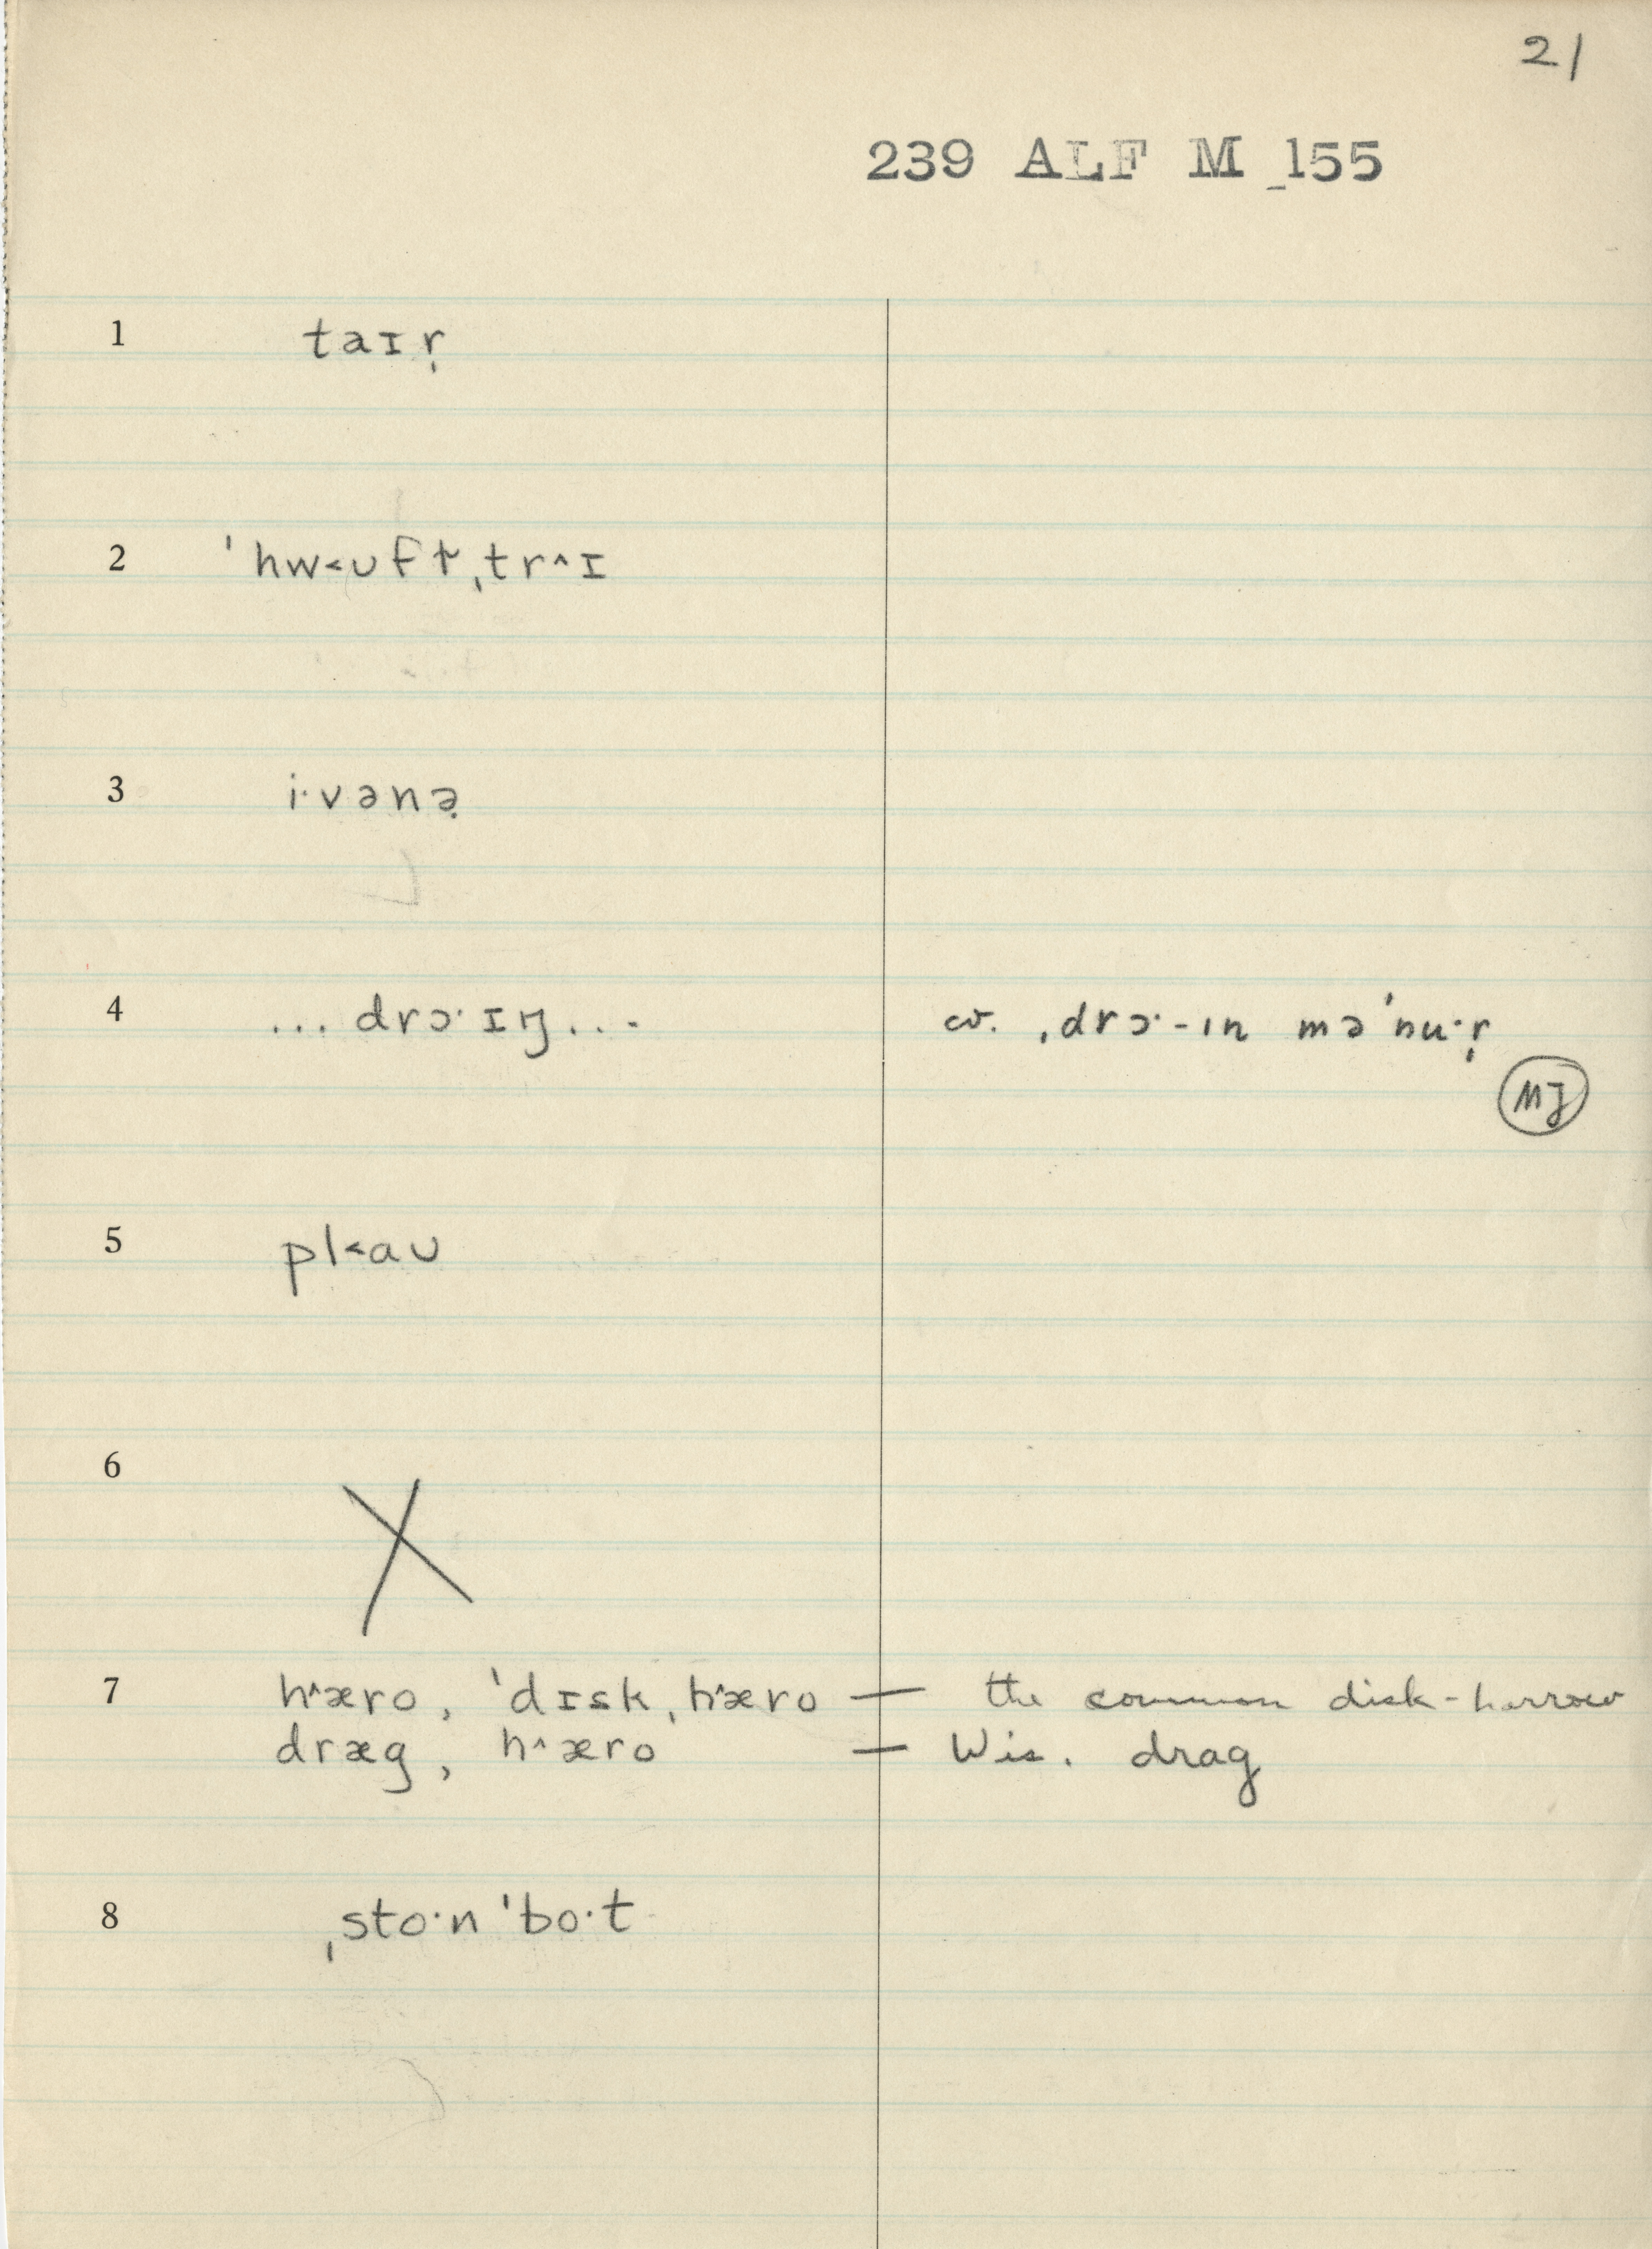 21
239 ALF M _155
1 taɪr̩
2 ˈhw˂ʊft̬ˌtr^ɪ
3 i·vənə̣
4 ...drɔ·ɪŋ... cv. ˌdrɔ·-ɪn məˈnu·r̩
MJ
5 pl˂aʊ
6 X
7 h^æro, ˈdɪskˌh^æro — the common disk-harrow
dræg, h^æro — Wis. drag
8 ˌsto·nˈbo·t